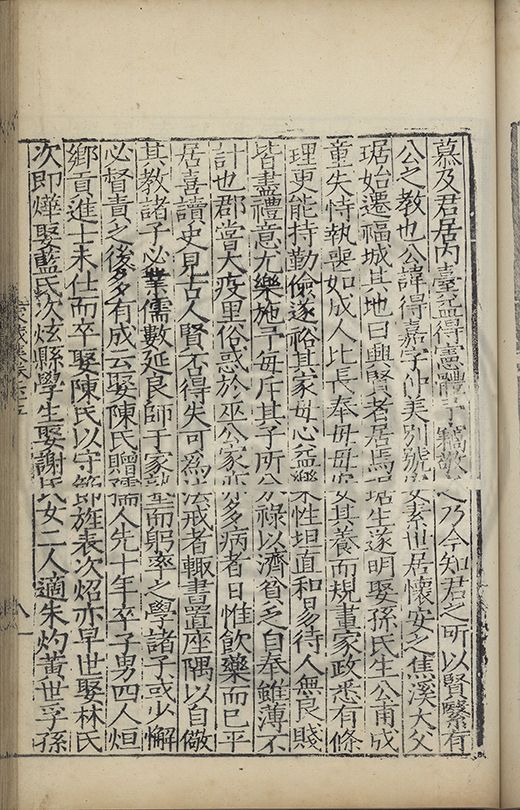 慕及君居内臺益得憲體予竊敬之乃今知君之所以賢繄有
公之教也公諱得嘉字仲美别號安素世居懷安之焦溪大父
琚始遷福城其地曰興賢者居焉琚生遂明娶孫氏生公甫成
童失恃執喪如成人比長奉母母安其養而規畫家政悉有條
理更能持勤儉遂裕其家母心益樂性坦直和易待人無良賤
皆盡禮意尤樂施予每斥其子所分祿以濟貧乏自奉雖薄不
計也郡嘗大疫里俗惑於巫公家亦多病者日惟飲藥而已平
居喜讀史見古人賢否得失可為法戒者輒書置座隅以自儆
其教諸子必業儒數延良師于家塾而躬率之學諸子或少懈
必督責之後多有成云娶陳氏贈孺人先十年卒子男四人烜
鄉貢進士未仕而卒娶陳氏以守節旌表次炤亦早世娶林氏
次即燁娶藍氏次炫縣學生娶謝氏女二人適朱灼黃世孚孫